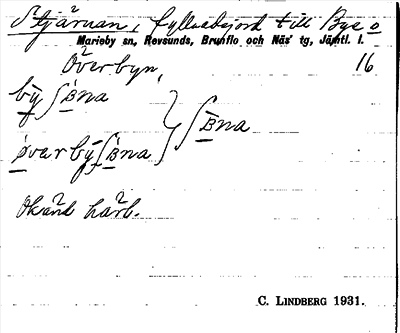 Stjärnan, Gyllnadsjord till Bye o
Marieby sn, Revsunds, Brunflo och Näs' tg, Jämtl. l.
Överbyn, 16
by̅ ʃɞna
øvarby̅ ʃɞna } ʃɞna
Okänd härl.
C. LINDBERG 1931.